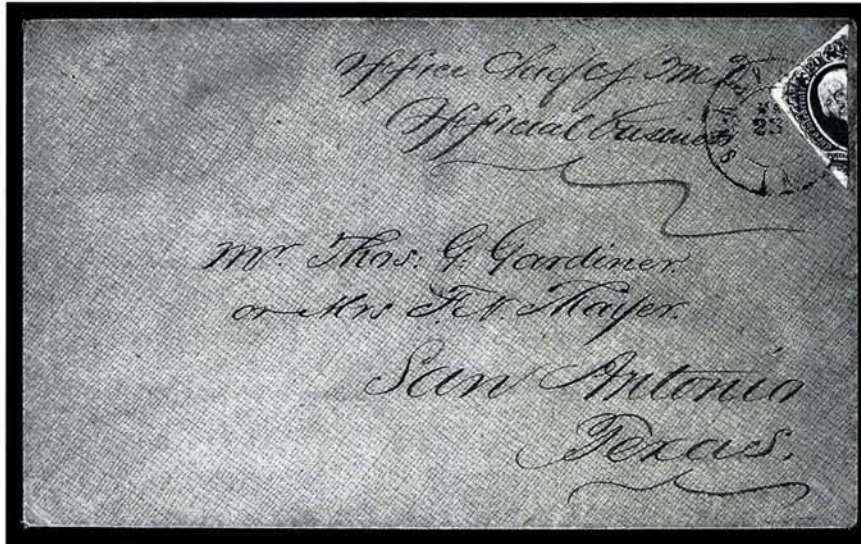 Office Chief of
Official business
23
Mr. Thos. G. Gardiner.
or Mrs F. V. Mayer.
San Antonio
Texas.